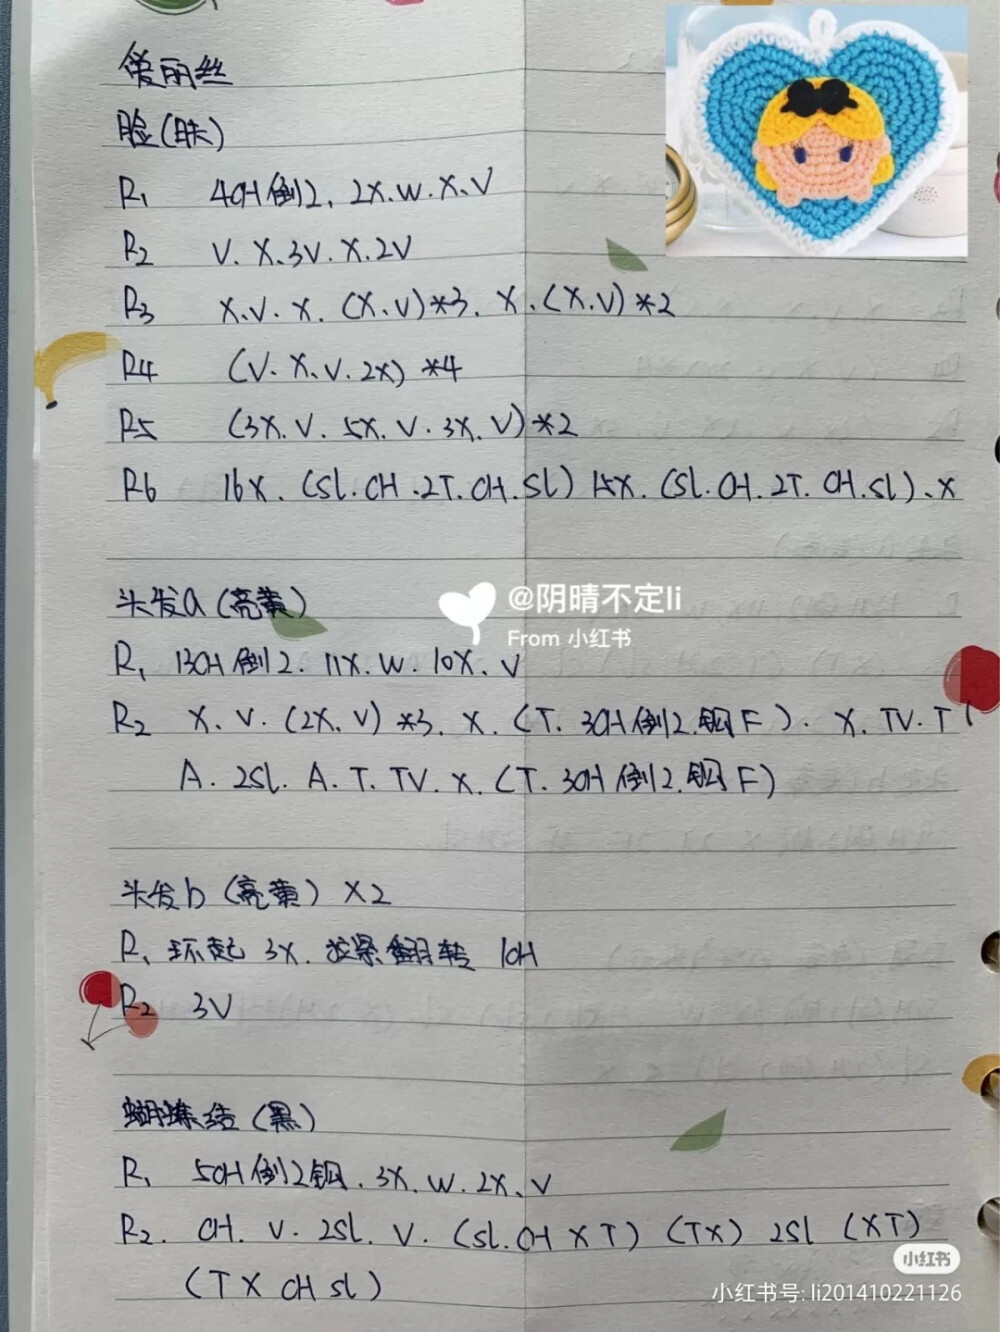 爱丽丝
脸(肤)
R1 4CH倒2, 2X.W.X.V
R2 V.X.3V.X.2V
R3 X.V.X.(X.V)*3.X.(X.V)*2
R4 (V.X.V.2X)*4
R5 (3X.V.5X.V.3X.V)*2
R6 16X.(sl.CH.2T.CH.sl)15X.(sl.CH.2T.CH.sl).X
头发a(亮黄)
R1 13CH倒2.11X.W.10X.V
R2 X.V.(2X.V)*3.X.(T.3CH倒2.钩F).X.TV.T
A.2sl.A.T.TV.X.(T.3CH倒2.钩F)
头发b(亮黄)X2
R1 环起 3X.拉紧翻转 1CH
R2 3V
蝴蝶结(黑)
R1 5CH倒2钩.3X.W.2X.V
R2. CH.V.2sl.V.(sl.CH X T)(TX)2sl(XT)
(T X CH sl)
@阴晴不定li
From 小红书
小红书
小红书号: li201410221126